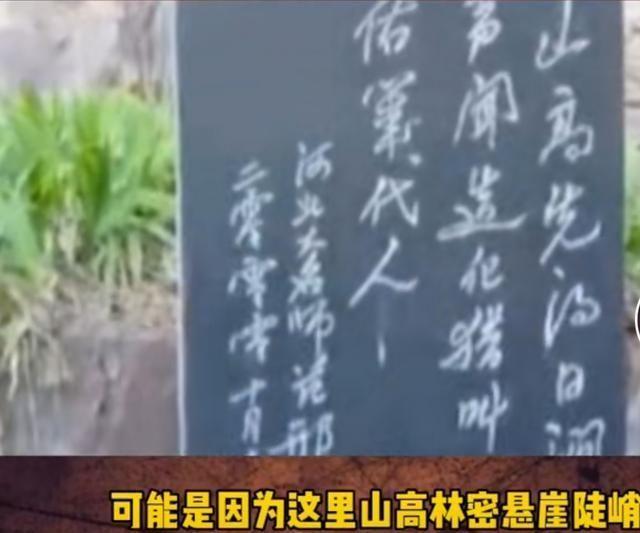 山高先得日
闻造化叫
佑代人
河北大名师范邢
二零零零十月
可能是因为这里山高林密悬崖陡峭